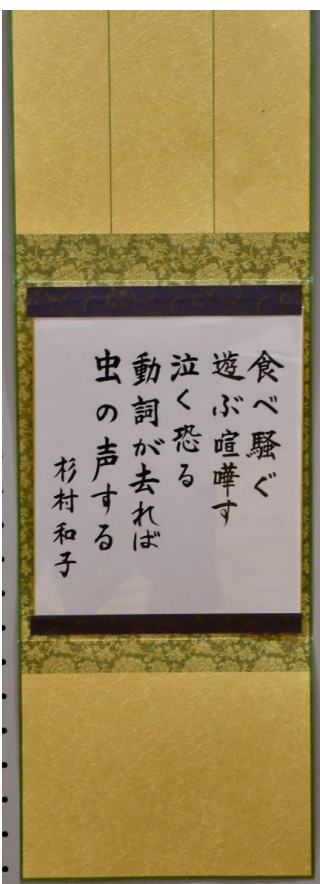 食べ騒ぐ
遊ぶ喧嘩す
泣く恐る
動詞が去れば
虫の声する
杉村和子